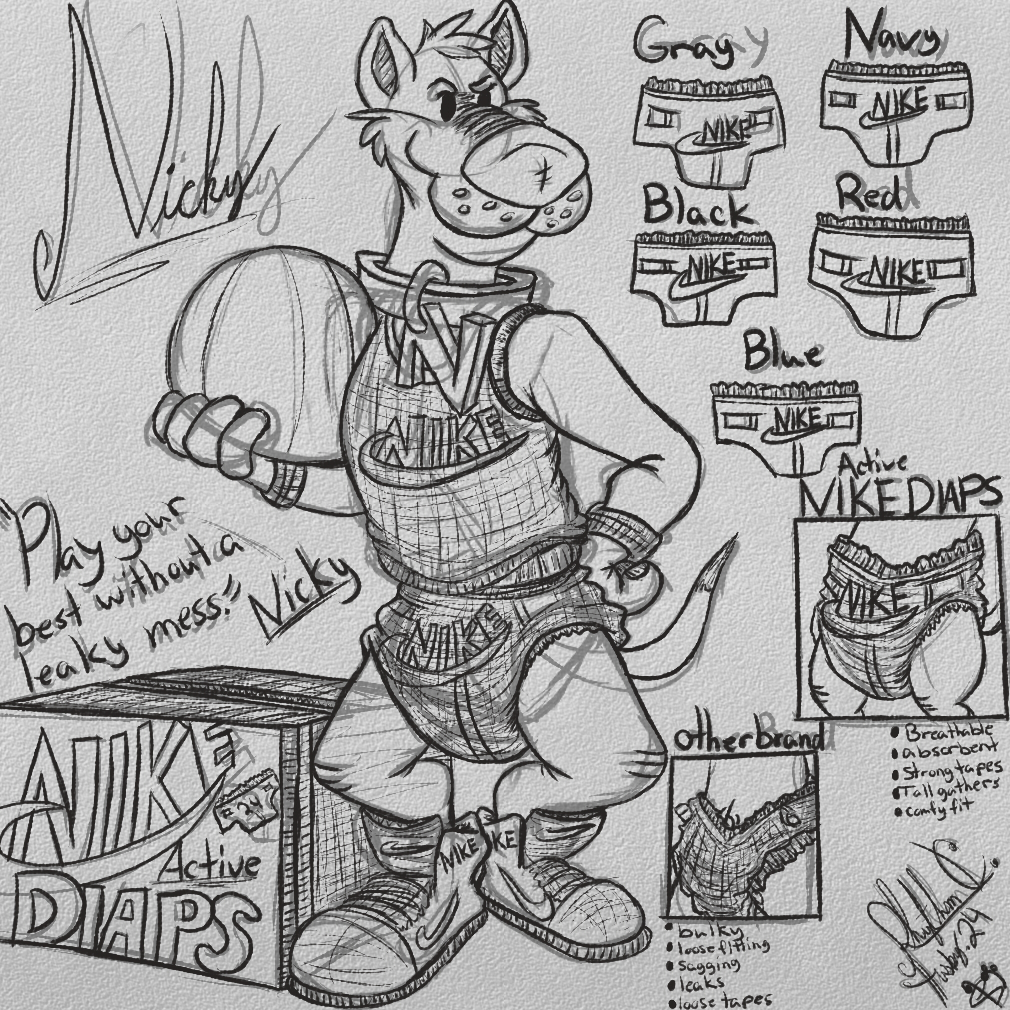 Nicky
Gray
NIKE
Navy
NIKE
Black
NIKE
Red
NIKE
Blue
NIKE
N
NIKE
NIKE
NIKE
KE
"Play your
best without a
leaky mess."
Nicky
NIKE
24
Active
DIAPS
Active
NIKE DIAPS
NIKE
• Breathable
• absorbent
• Strong tapes
• Tall gathers
• comfy fit
Other Brand
• bulky
• loose fitting
• sagging
• leaks
• loose tapes
24